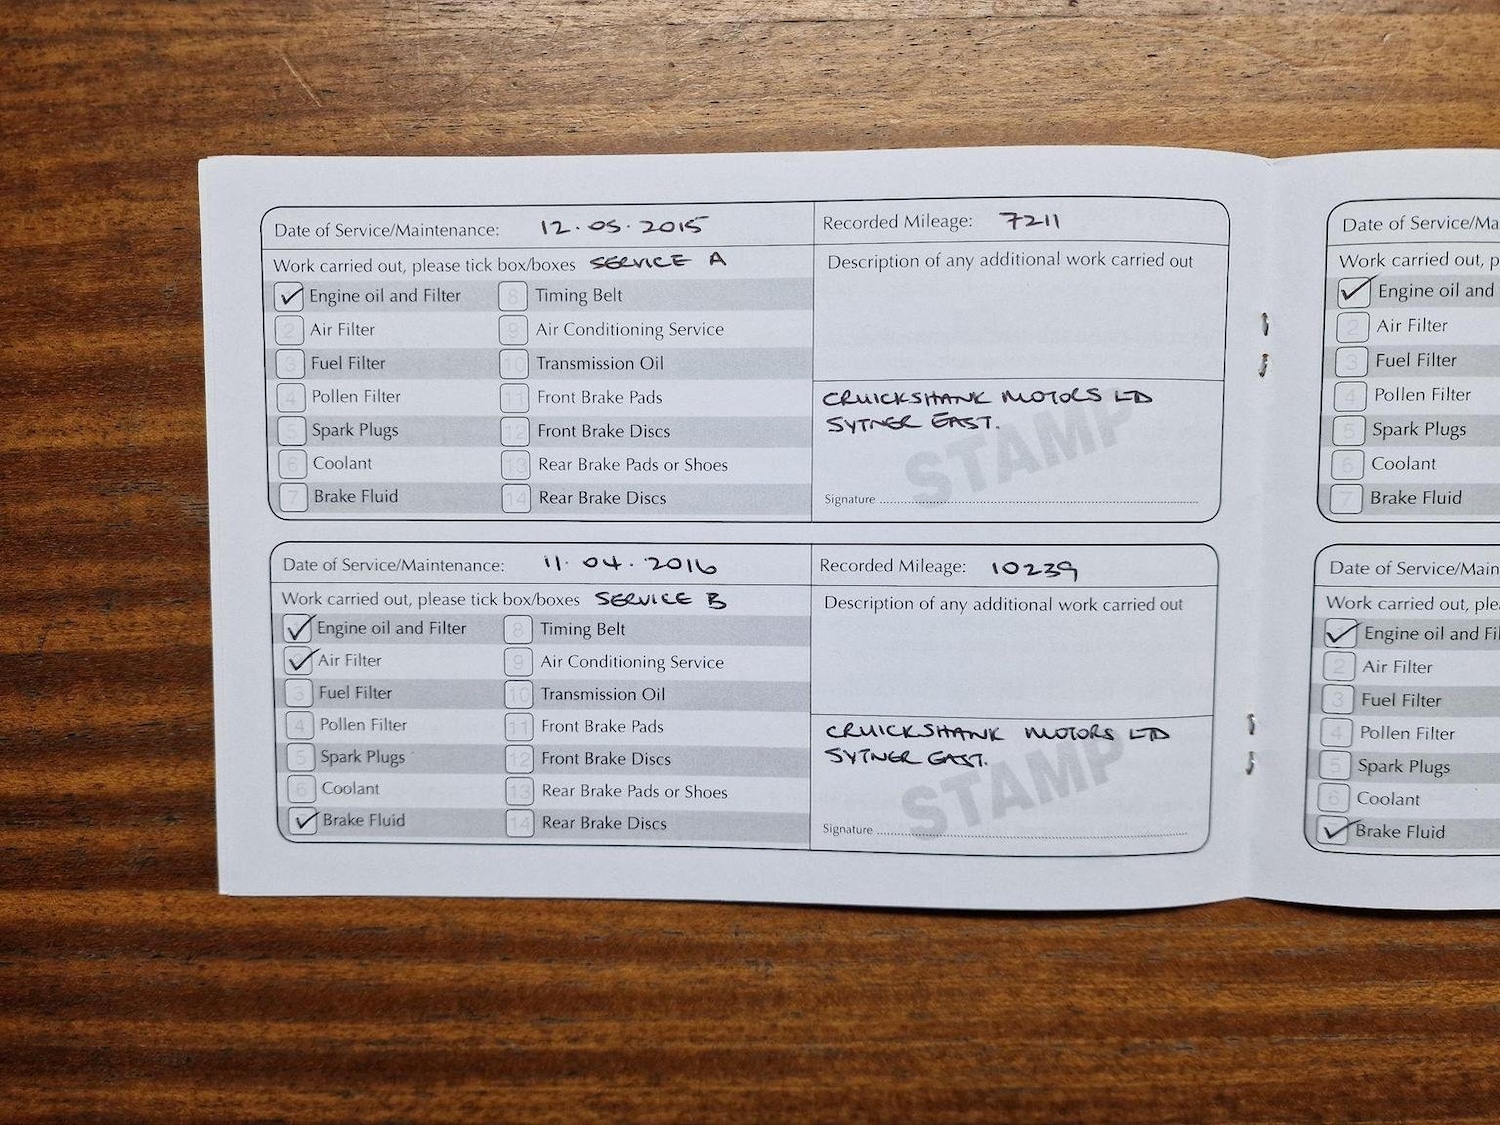 Date of Service/Maintenance: 12.05.2015
Recorded Mileage: 7211
Work carried out, please tick box/boxes SERVICE A
Description of any additional work carried out
Engine oil and Filter
8 Timing Belt
2 Air Filter
9 Air Conditioning Service
3 Fuel Filter
10 Transmission Oil
4 Pollen Filter
11 Front Brake Pads
5 Spark Plugs
12 Front Brake Discs
6 Coolant
13 Rear Brake Pads or Shoes
7 Brake Fluid
14 Rear Brake Discs
CRUICKSHANK MOTORS LTD
SYTNER EAST.
STAMP
Signature
Date of Service/Maintenance: 11.04.2016
Recorded Mileage: 10239
Work carried out, please tick box/boxes SERVICE B
Description of any additional work carried out
Engine oil and Filter
8 Timing Belt
Air Filter
9 Air Conditioning Service
3 Fuel Filter
10 Transmission Oil
4 Pollen Filter
11 Front Brake Pads
5 Spark Plugs
12 Front Brake Discs
6 Coolant
13 Rear Brake Pads or Shoes
Brake Fluid
14 Rear Brake Discs
CRUICKSHANK MOTORS LTD
SYTNER EAST.
STAMP
Signature
Date of Service/Ma
Work carried out, p
Engine oil and
2 Air Filter
3 Fuel Filter
4 Pollen Filter
5 Spark Plugs
6 Coolant
7 Brake Fluid
Date of Service/Main
Work carried out, ple
Engine oil and Fil
2 Air Filter
3 Fuel Filter
4 Pollen Filter
5 Spark Plugs
6 Coolant
Brake Fluid